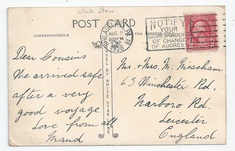 POST CARD
CORRESPONDENCE
NOTIFY
YOUR
CORRESPONDENTS
OF CHANGE
OF ADDRESS
Dear Cousins
We arrived safe
after a very
good voyage
Love from all
Maud
Mr. & Mrs. M. Meacham
63 Winchester Rd.
Narboro Rd.
Leicester
England